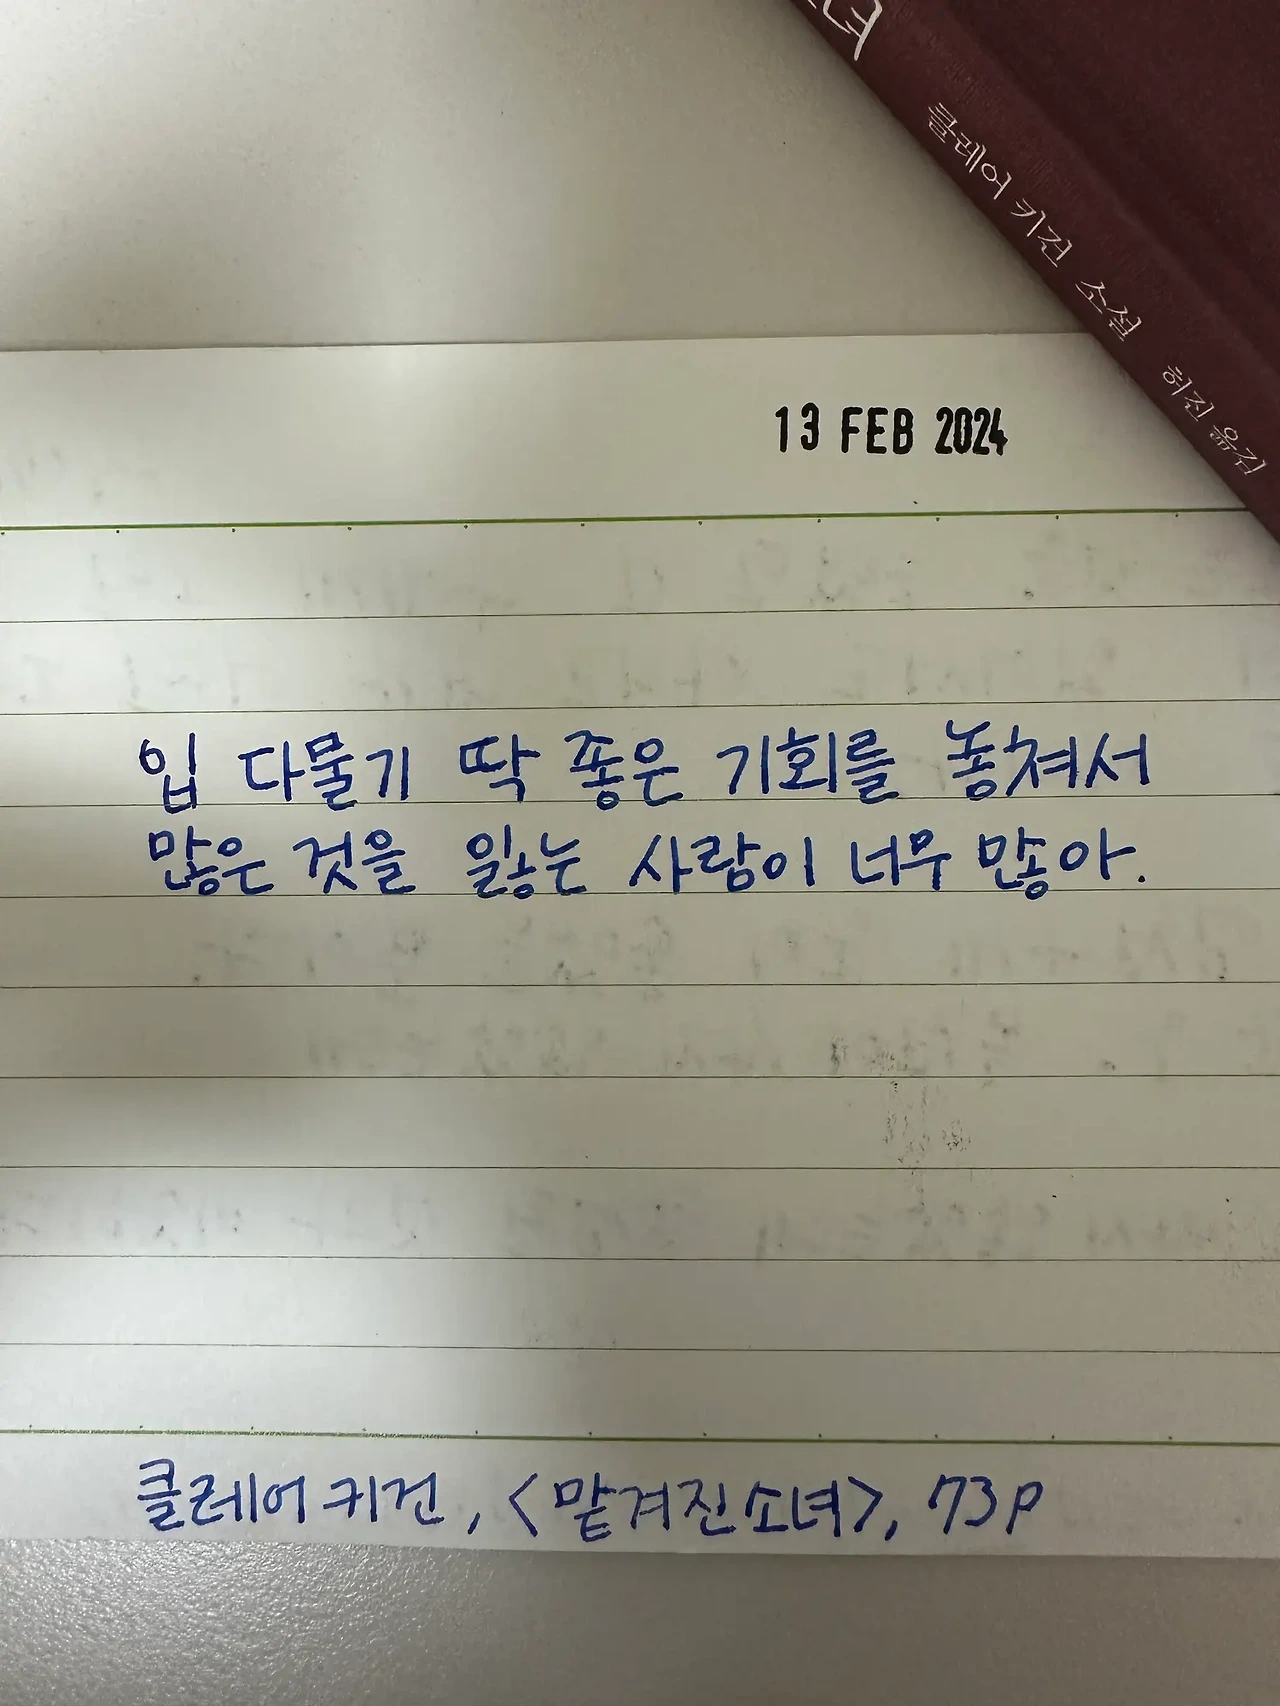 녀
클레어 키건 소설 허진 옮김
13 FEB 2024
입 다물기 딱 좋은 기회를 놓쳐서
많은 것을 잃는 사람이 너무 많아.
클레어 키건, <맡겨진 소녀>, 73p